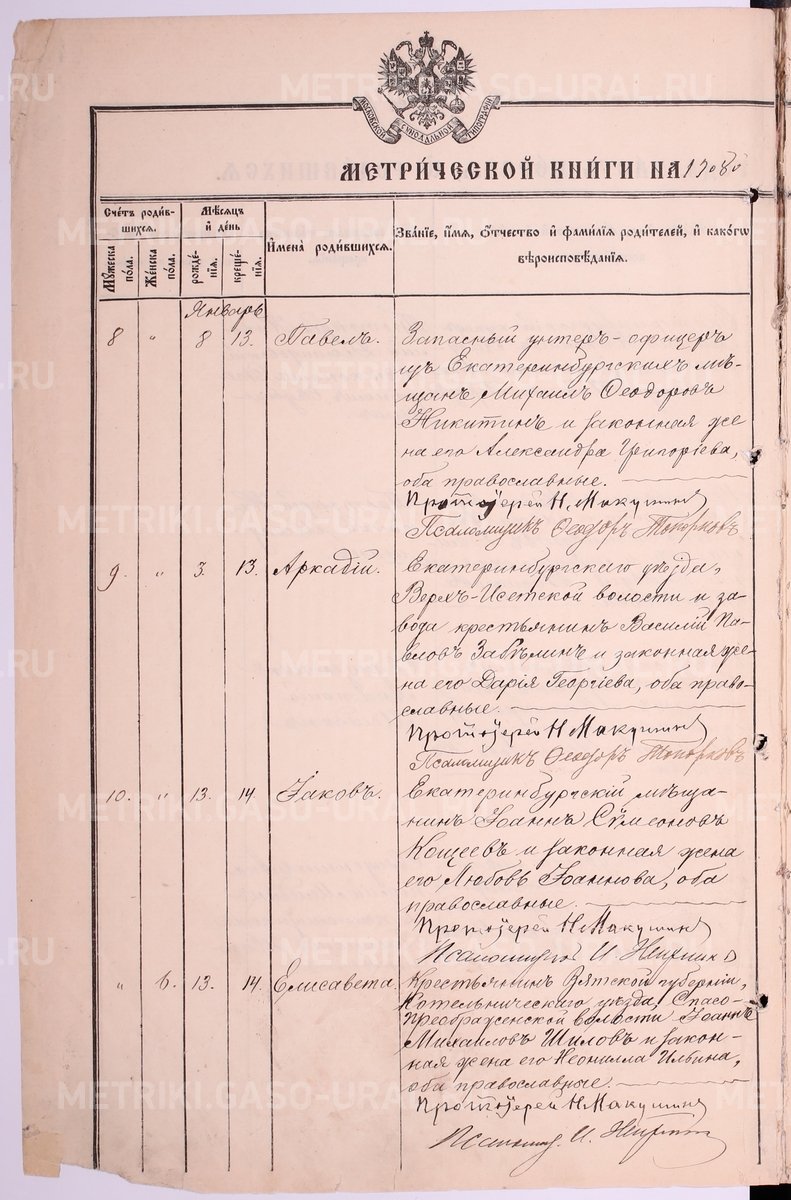 МОСКОВСКОЙ СѴНОДАЛЬНОЙ ТИПОГРАФІИ
МЕТРИ́ЧЕСКОЙ КНИ́ГИ НА 1908й
Сче́тъ роди́в-
шихся.
Мѣ́сяцъ
и҆ де́нь
И҆мена̀ роди́вшихся.
Зва́ніе, и҆́мя, ѻ҆́тчество и҆ фами́лія роди́телей, и҆ како́гѡ
вѣроисповѣ́данія.
Му́жеска по́ла.
Же́нска по́ла.
рожде́нія.
креще́нія.
Январь
8 " 8 13. Павелъ. Запасный унтеръ-офицеръ
изъ Екатеринбургскихъ мѣ-
щанъ Михаилъ Ѳеодоровъ
Никитинъ и законная же
на его Александра Григоріева,
оба православные.
Протоіерей Н. Макушинъ
Псаломщикъ Ѳеодоръ Топорковъ
9. " 3. 13. Аркадій. Екатеринбургскаго уѣзда,
Верхъ-Исетской волости и за-
вода крестьянинъ Василій Па-
вловъ Забѣлинъ и законная же-
на его Дарія Георгіева, оба право-
славные.
Протоіерей Н. Макушинъ
Псаломщикъ Ѳеодоръ Топорковъ
10. " 13. 14. Іаковъ. Екатеринбургскій мѣща-
нинъ Іоаннъ Сѵмеоновъ
Кощеевъ и законная жена
его Любовь Іоаннова, оба
православные.
Протоіерей Н. Макушинъ
Псаломщикъ И.
" 6. 13. 14. Елисавета. Крестьянинъ Вятской губерніи,
Котельническаго уѣзда, Спасо-
Преображенской волости Іоаннъ
Михаиловъ Шиловъ и закон-
ная жена его Неонилла Ильина,
оба православные.
Протоіерей Н. Макушинъ
Псаломщ. И.
METRIKI.GASO-URAL.RU